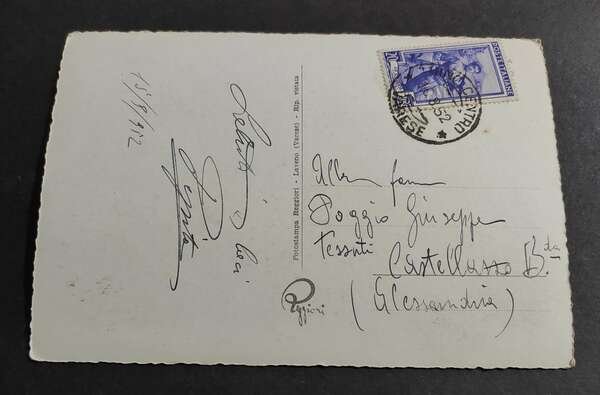 15/8/952
Saluti cari
Fotostampa Reggiori - Laveno (Varese) - Rip. vietata
Reggiori
POSTE ITALIANE
CENTRO
8.52
VARESE
Alla fam
Poggio Giuseppe
Tessuti
Castellazzo B.da
(Alessandria)